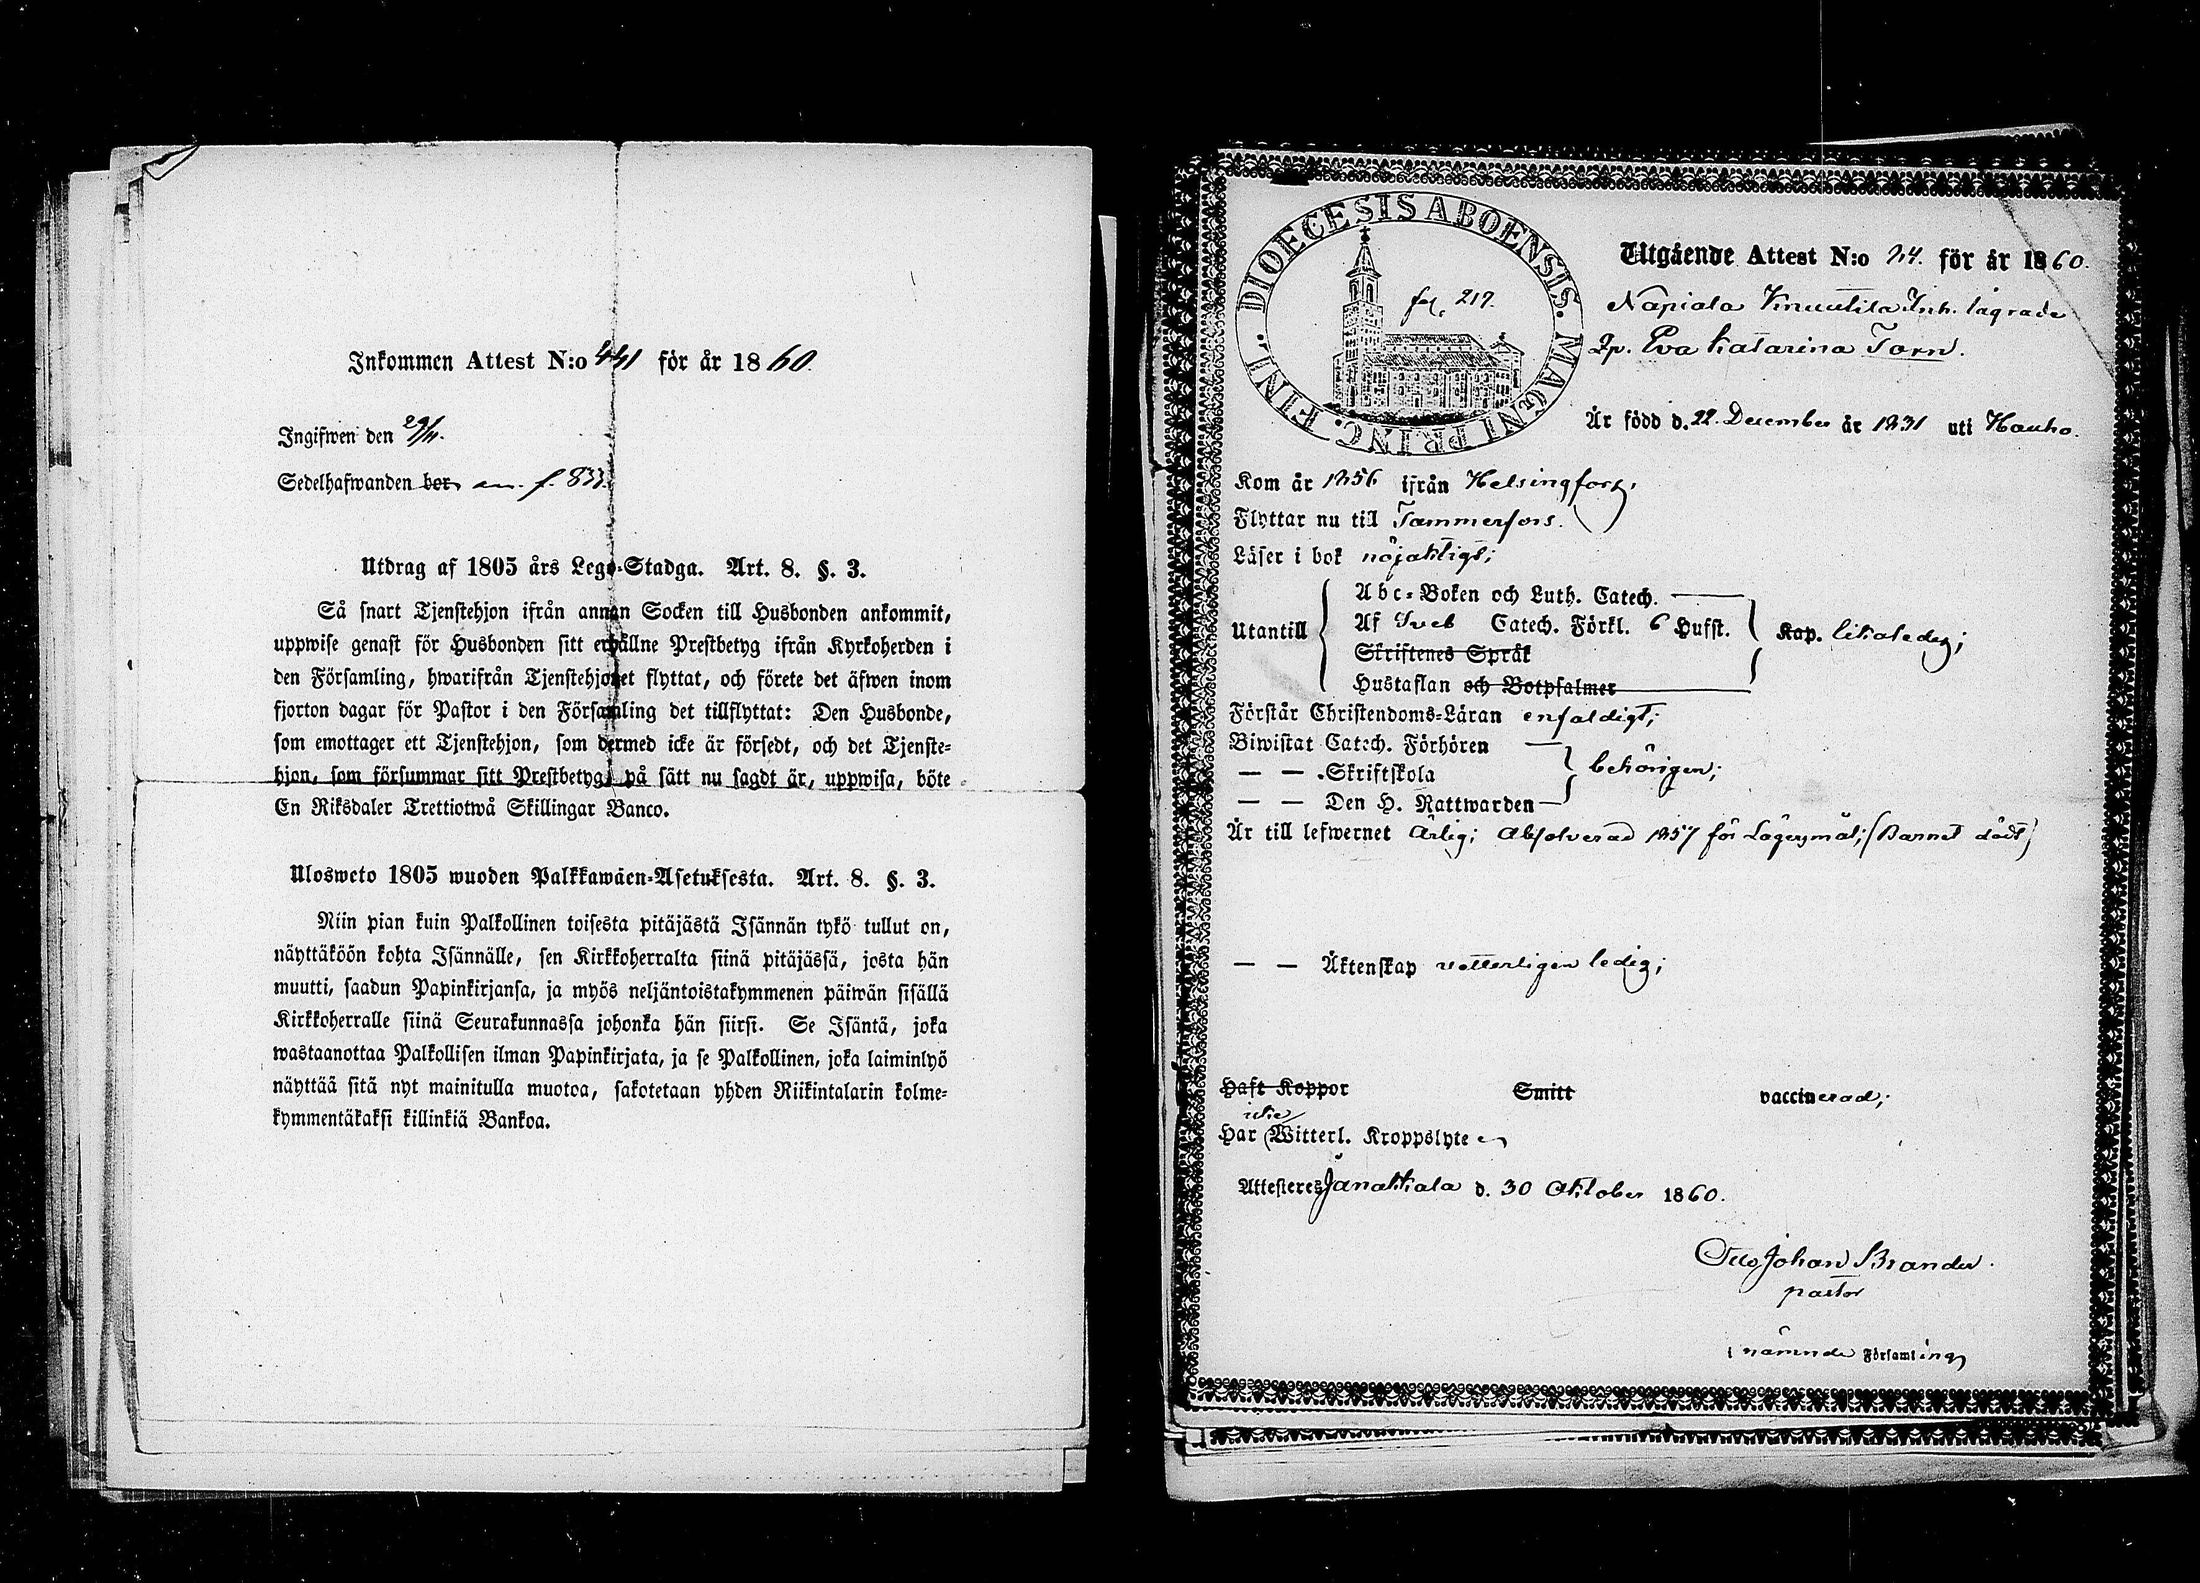 Inkommen Attest N:o 441 för år 1860.
Ingifwen den 29/11.
Sedelhafwanden bor an. f. 833.
Utdrag af 1805 års Lego-Stadga. Art. 8. §. 3.
Så snart Tjenstehjon ifrån annan Socken till Husbonden ankommit,
uppwise genast för Husbonden sitt erhållne Prestbetyg ifrån Kyrkoherden i
den Församling, hwarifrån Tjenstehjonet flyttat, och förete det äfwen inom
fjorton dagar för Pastor i den Församling det tillflyttat: Den Husbonde,
som emottager ett Tjenstehjon, som dermed icke är försedt, och det Tjenste-
hjon, som försummar sitt Prestbetyg, på sätt nu sagdt är, uppwisa, böte
En Riksdaler Trettiotwå Skillingar Banco.
Ulosweto 1805 wuoden Palkkawäen-Asetuksesta. Art. 8. §. 3.
Niin pian kuin Palkollinen toisesta pitäjästä Isännän tykö tullut on,
näyttäköön kohta Isännälle, sen Kirkkoherralta siinä pitäjässä, josta hän
muutti, saadun Papinkirjansa, ja myös neljäntoistakymmenen päiwän sisällä
Kirkkoherralle siinä Seurakunnassa johonka hän siirsi. Se Isäntä, joka
wastaanottaa Palkollisen ilman Papinkirjata, ja se Palkollinen, joka laiminlyö
näyttää sitä nyt mainitulla muotoa, sakotetaan yhden Riikintalarin kolme-
kymmentäkaksi killinkiä Bankoa.
DIOECESIS ABOENSIS. MAGNI PRINC. FINL.
fol. 217.
Utgående Attest N:o 24. för år 1860.
Napiala Knuutila Inh. lägrade
Qp. Eva Katarina Torn.
Är född d. 22. December år 1831 uti Hauho.
Kom år 1856 ifrån Helsingfors,
Flyttar nu till Tammerfors.
Läser i bok nöjaktigt;
Utantill
Abc-Boken och Luth. Catech.
Af Sveb Catech. Förkl. 6 Hufst.
Skriftenes Språk
Hustaflan och Botpsalmer
Kap. likaledes;
Förstår Christendoms-Läran enfaldigt;
Biwistat Catech. Förhören
— — Skriftskola
— — Den H. Nattwarden
behörigen;
Är till lefwernet Ärlig; Absolverad 1857 för Lägersmål; (Barnet dödt)
— — Äktenskap vetterligen ledig;
Haft Koppor Smitt vaccinerad;
icke
Har Witterl. Kroppslyte
Attesteres Janakkala d. 30 Oktober 1860.
Otto Johan Brander.
pastor
i nämnde Församling